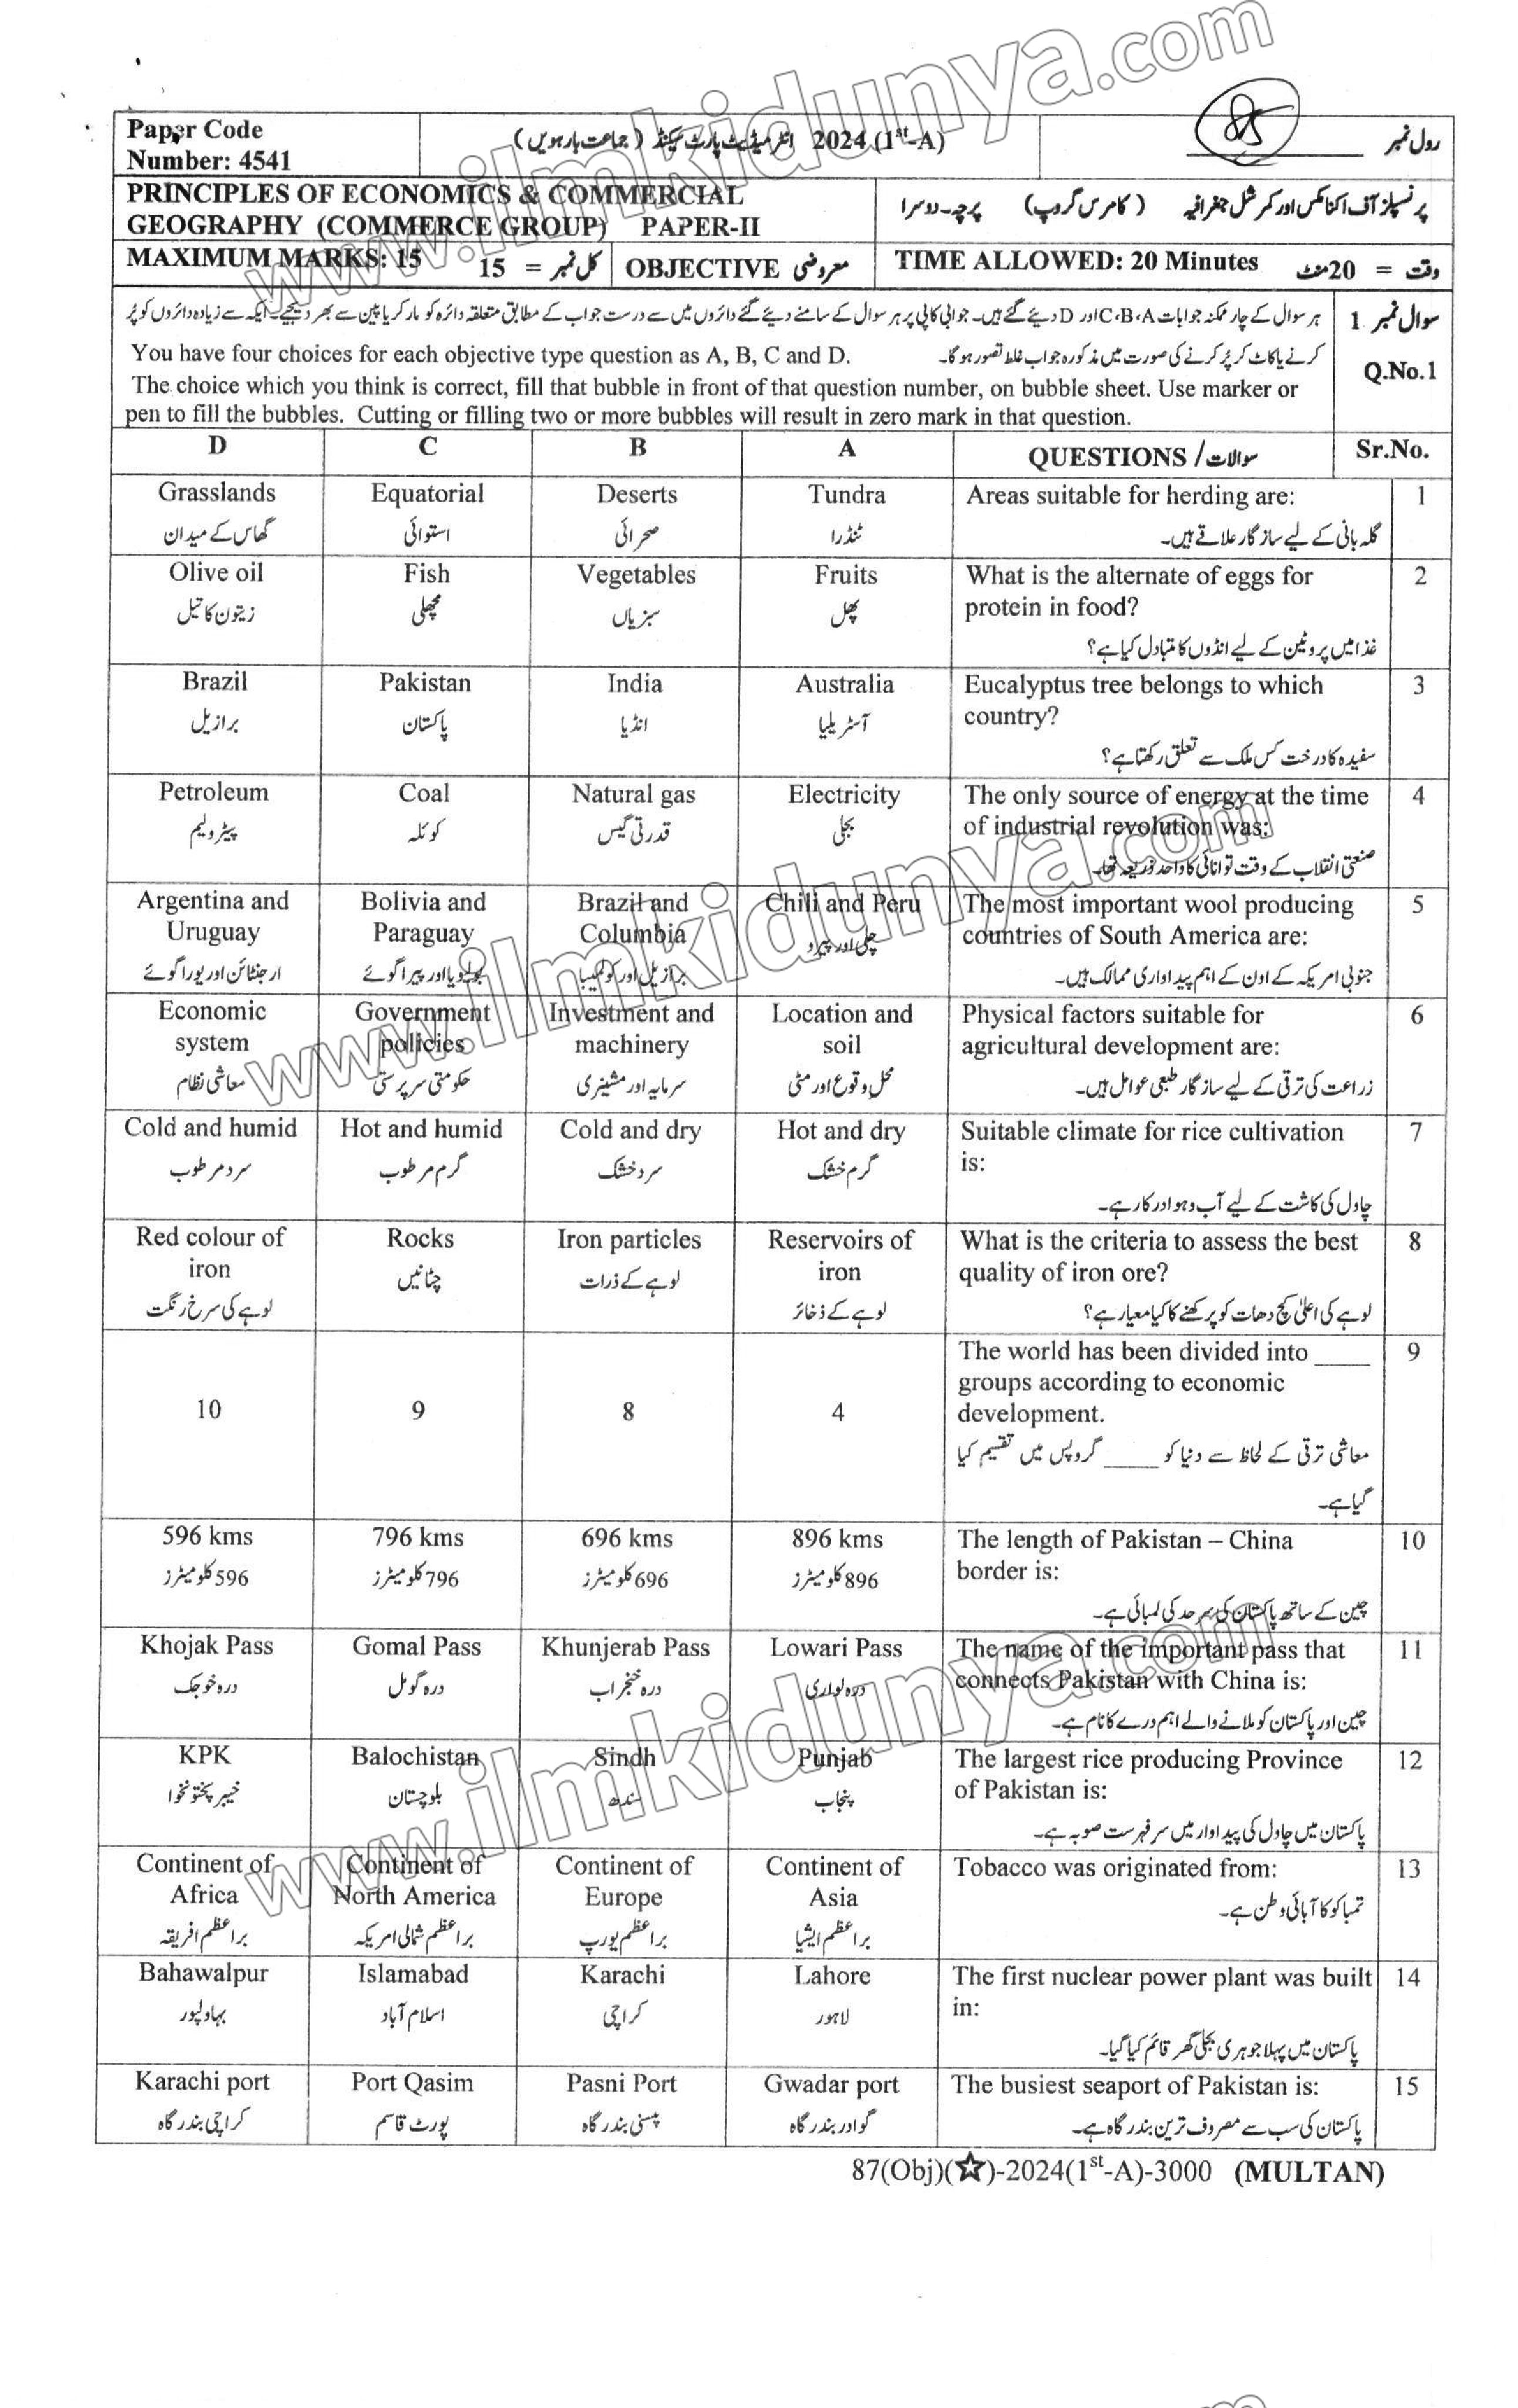 Paper Code
Number: 4541
2024 (1st-A) انٹرمیڈیٹ پارٹ سیکنڈ (جماعت بارہویں)
رول نمبر
PRINCIPLES OF ECONOMICS & COMMERCIAL
GEOGRAPHY (COMMERCE GROUP) PAPER-II
پرنسپلز آف اکنامکس اور کمرشل جغرافیہ (کامرس گروپ) پرچہ۔دوسرا
MAXIMUM MARKS: 15
کل نمبر = 15
OBJECTIVE معروضی
TIME ALLOWED: 20 Minutes
وقت = 20 منٹ
سوال نمبر 1
ہر سوال کے چار ممکنہ جوابات A،B،C اور D دیئے گئے ہیں۔ جوابی کاپی پر ہر سوال کے سامنے دیئے گئے دائروں میں سے درست جواب کے مطابق متعلقہ دائرہ کو مارکر یا پین سے بھر دیجیے۔ ایک سے زیادہ دائروں کو پُر
کرنے یا کاٹ کر پُر کرنے کی صورت میں مذکورہ جواب غلط تصور ہوگا۔
Q.No.1
You have four choices for each objective type question as A, B, C and D.
The choice which you think is correct, fill that bubble in front of that question number, on bubble sheet. Use marker or
pen to fill the bubbles. Cutting or filling two or more bubbles will result in zero mark in that question.
D C B A QUESTIONS / سوالات Sr.No.
Grasslands Equatorial Deserts Tundra Areas suitable for herding are: 1
گھاس کے میدان استوائی صحرائی ٹنڈرا گلہ بانی کے لیے سازگار علاقے ہیں۔
Olive oil Fish Vegetables Fruits What is the alternate of eggs for 2
protein in food?
زیتون کا تیل مچھلی سبزیاں پھل غذا میں پروٹین کے لیے انڈوں کا متبادل کیا ہے؟
Brazil Pakistan India Australia Eucalyptus tree belongs to which 3
country?
برازیل پاکستان انڈیا آسٹریلیا سفیدہ کا درخت کس ملک سے تعلق رکھتا ہے؟
Petroleum Coal Natural gas Electricity The only source of energy at the time 4
of industrial revolution was:
پیٹرولیم کوئلہ قدرتی گیس بجلی صنعتی انقلاب کے وقت توانائی کا واحد ذریعہ تھا۔
Argentina and Bolivia and Brazil and Chili and Peru The most important wool producing 5
Uruguay Paraguay Columbia countries of South America are:
ارجنٹائن اور یوراگوئے بولیویا اور پیراگوئے برازیل اور کولمبیا چلی اور پیرو جنوبی امریکہ کے اون کے اہم پیداواری ممالک ہیں۔
Economic Government Investment and Location and Physical factors suitable for 6
system policies machinery soil agricultural development are:
معاشی نظام حکومتی سرپرستی سرمایہ اور مشینری محل وقوع اور مٹی زراعت کی ترقی کے لیے سازگار طبعی عوامل ہیں۔
Cold and humid Hot and humid Cold and dry Hot and dry Suitable climate for rice cultivation 7
is:
سرد مرطوب گرم مرطوب سرد خشک گرم خشک چاول کی کاشت کے لیے آب و ہوا درکار ہے۔
Red colour of Rocks Iron particles Reservoirs of What is the criteria to assess the best 8
iron iron quality of iron ore?
لوہے کی سرخ رنگت چٹانیں لوہے کے ذرات لوہے کے ذخائر لوہے کی اعلیٰ کچ دھات کو پرکھنے کا کیا معیار ہے؟
The world has been divided into ____ 9
groups according to economic
10 9 8 4 development.
معاشی ترقی کے لحاظ سے دنیا کو ____ گروپس میں تقسیم کیا
گیا ہے۔
596 kms 796 kms 696 kms 896 kms The length of Pakistan – China 10
border is:
596 کلومیٹرز 796 کلومیٹرز 696 کلومیٹرز 896 کلومیٹرز
چین کے ساتھ پاکستان کی سرحد کی لمبائی ہے۔
Khojak Pass Gomal Pass Khunjerab Pass Lowari Pass The name of the important pass that 11
connects Pakistan with China is:
درہ خوجک درہ گومل درہ خنجراب درہ لواری چین اور پاکستان کو ملانے والے اہم درے کا نام ہے۔
KPK Balochistan Sindh Punjab The largest rice producing Province 12
of Pakistan is:
خیبر پختونخوا بلوچستان سندھ پنجاب پاکستان میں چاول کی پیداوار میں سرفہرست صوبہ ہے۔
Continent of Continent of Continent of Continent of Tobacco was originated from: 13
Africa North America Europe Asia
براعظم افریقہ براعظم شمالی امریکہ براعظم یورپ براعظم ایشیا تمباکو کا آبائی وطن ہے۔
Bahawalpur Islamabad Karachi Lahore The first nuclear power plant was built 14
in:
بہاولپور اسلام آباد کراچی لاہور پاکستان میں پہلا جوہری بجلی گھر قائم کیا گیا۔
Karachi port Port Qasim Pasni Port Gwadar port The busiest seaport of Pakistan is: 15
کراچی بندرگاہ پورٹ قاسم پسنی بندرگاہ گوادر بندرگاہ پاکستان کی سب سے مصروف ترین بندرگاہ ہے۔
87(Obj)(☆)-2024(1st-A)-3000 (MULTAN)
www.ilmkidunya.com
www.ilmkidunya.com
www.ilmkidunya.com